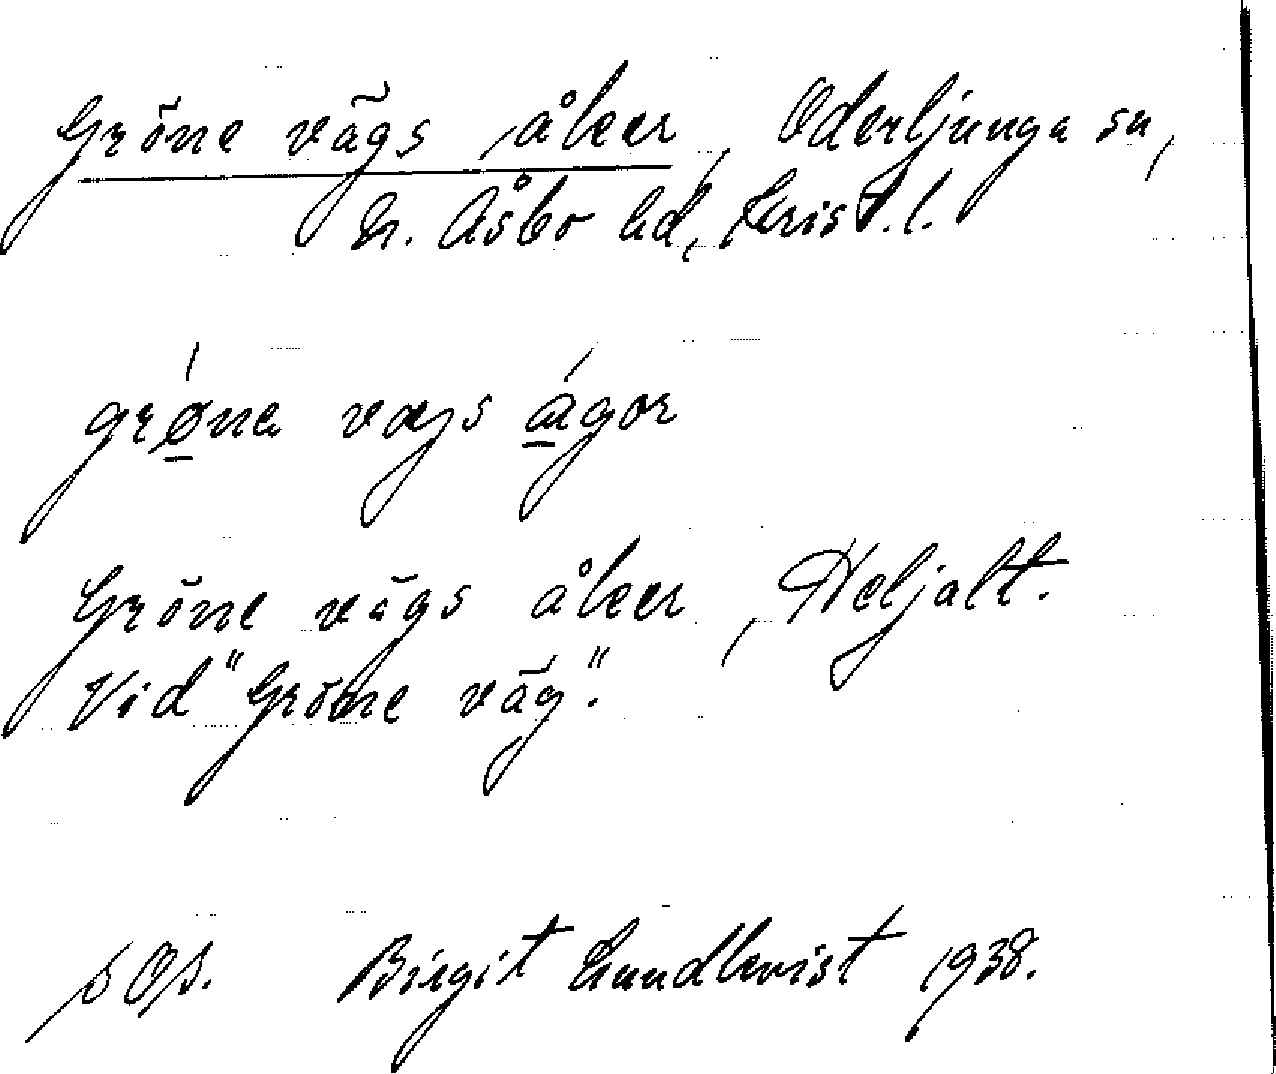 Gröne vägs åker, Oderljunga sn,
N. Åsbo hd, Krist. l.
grǿna vægs ågor
Gröne vägs åker, Heljalt.
Vid "Gröne väg".
Birgit Lundkvist 1938.